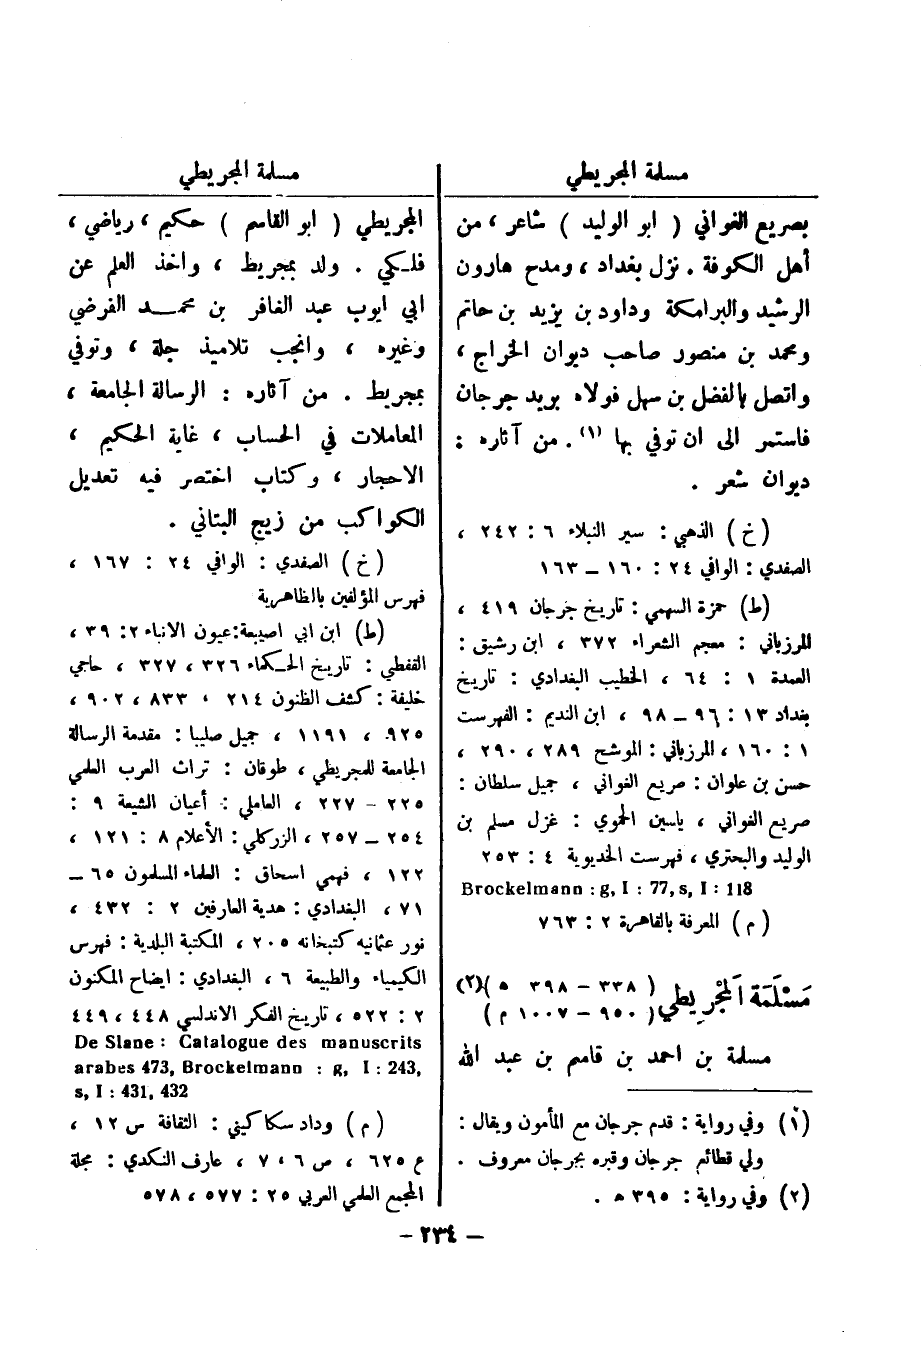 مسلمة المجريطي
بصريع الغواني ( ابو الوليد ) شاعر ، من
أهل الكوفة . نزل بغداد ، ومدح هارون
الرشيد والبرامكة وداود بن يزيد بن حاتم
ومحمد بن منصور صاحب ديوان الخراج ،
واتصل بالفضل بن سهل فولاه بريد جرجان
فاستمر الى ان توفي بها (١) . من آثاره :
ديوان شعر .
(خ) الذهبي : سير النبلاء ٦ : ٢٤٢ ،
الصفدي : الوافي ٢٤ : ١٦٠ – ١٦٣
(ط) حمزة السهمي : تاريخ جرجان ٤١٩ ،
المرزباني : معجم الشعراء ٣٧٢ ، ابن رشيق :
العمدة ١ : ٦٤ ، الخطيب البغدادي : تاريخ
بغداد ١٣ : ٩٦ – ٩٨ ، ابن النديم : الفهرست
١ : ١٦٠ ، المرزباني : الموشح ٢٨٩ ، ٢٩٠ ،
حسن بن علوان : صريع الغواني ، جميل سلطان :
صريع الغواني ، ياسين الحموي : غزل مسلم بن
الوليد والبحتري ، فهرست الخديوية ٤ : ٢٥٣
Brockelmann : g, I : 77, s, I : 118
(م) المعرفة بالقاهرة ٢ : ٧٦٣
مَسْلَمَة المَجْرِيطي ( ٣٣٨ – ٣٩٨ ه )(٢)
( ٩٥٠ – ١٠٠٧ م )
مسلمة بن احمد بن قاسم بن عبد الله
(١) وفي رواية : قدم جرجان مع المأمون ويقال :
ولي قطائع جرجان وقبره بجرجان معروف .
(٢) وفي رواية : ٣٩٥ ه .
مسلمة المجريطي
المجريطي ( ابو القاسم ) حكيم ، رياضي ،
فلكي . ولد بمجريط ، واخذ العلم عن
ابي ايوب عبد الغافر بن محمد الفرضي
وغيره ، وانجب تلاميذ جلة ، وتوفي
بمجريط . من آثاره : الرسالة الجامعة ،
المعاملات في الحساب ، غاية الحكيم ،
الاحجار ، وكتاب اختصر فيه تعديل
الكواكب من زيج البتاني .
(خ) الصفدي : الوافي ٢٤ : ١٦٧ ،
فهرس المؤلفين بالظاهرية
(ط) ابن ابي اصيبعة : عيون الانباء ٢ : ٣٩ ،
القفطي : تاريخ الحكماء ٣٢٦ ، ٣٢٧ ، حاجي
خليفة : كشف الظنون ٢١٤ ، ٨٣٣ ، ٩٠٢ ،
٩٢٥ ، ١١٩١ ، جميل صليبا : مقدمة الرسالة
الجامعة للمجريطي ، طوقان : تراث العرب العلمي
٢٢٥ – ٢٢٧ ، العاملي : أعيان الشيعة ٩ :
٢٥٤ – ٢٥٧ ، الزركلي : الأعلام ٨ : ١٢١ ،
١٢٢ ، فهمي اسحاق : العلماء المسلمون ٦٥ –
٧١ ، البغدادي : هدية العارفين ٢ : ٤٣٢ ،
نور عثمانيه كتبخانه ٢٠٥ ، المكتبة البلدية : فهرس
الكيمياء والطبيعة ٦ ، البغدادي : ايضاح المكنون
٢ : ٥٢٢ ، تاريخ الفكر الاندلسي ٤٤٨ ، ٤٤٩
De Slane : Catalogue des manuscrits
arabes 473, Brockelmann : g, I : 243,
s, I : 431, 432
(م) وداد سكاكيني : الثقافة س ١٢ ،
ع ٦٢٥ ، ص ٦ ، ٧ ، عارف النكدي : مجلة
المجمع العلمي العربي ٢٥ : ٥٧٧ ، ٥٧٨
– ٢٣٤ –